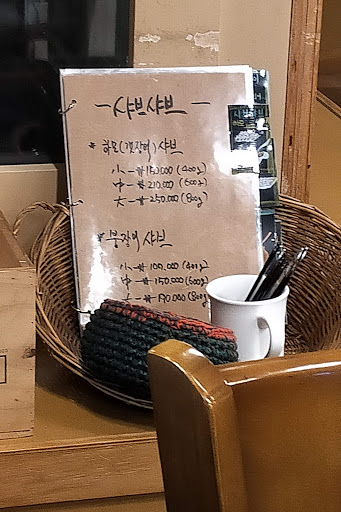 - 샤브샤브 -
* 하모(갯장어) 샤브
小 - ₩150.000 (400g)
中 - ₩210.000 (600g)
大 - ₩250.000 (800g)
* 붕장어 샤브
小 - ₩100.000 (400g)
中 - ₩150.000 (600g)
大 - ₩190.000 (800g)